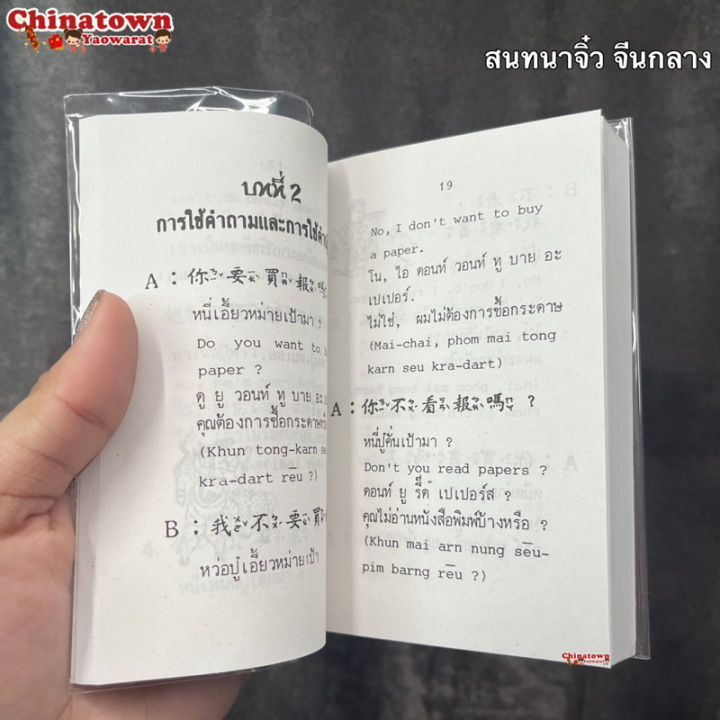 Chinatown
Yaowarat
สนทนาจิ๋ว จีนกลาง
บทที่ 2
การใช้คำถามและการใช้คำ
A : 你要買報嗎
หนี่เอี้ยวหม่ายเป้ามา ?
Do you want to b
paper ?
ดู ยู วอนท์ ทู บาย อะ
คุณต้องการซื้อกระดาษ
(Khun tong-karn se
kra-dart rēu ?)
B : 我不要買
หว่อปู๋เอี้ยวหม่ายเป้า
19
No, I don't want to buy
a paper.
โน, ไอ ดอนท์ วอนท์ ทู บาย อะ
เปเปอร์.
ไม่ใช่, ผมไม่ต้องการซื้อกระดาษ
(Mai-chai, phom mai tong
karn seu kra-dart)
A : 你不看報嗎 ?
หนี่ปู๋คั่นเป้ามา ?
Don't you read papers ?
ดอนท์ ยู รี๊ด เปเปอร์ส ?
คุณไม่อ่านหนังสือพิมพ์บ้างหรือ ?
(Khun mai arn nung sēu-
pim barng rēu ?)
Chinatown
Yaowarat